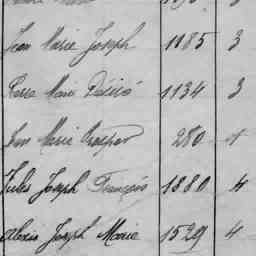 Jean Marie Joseph 1185 3
Marie 1134 3
Jean Marie Gaspar 280 1
Jules Joseph François 1880 4
Alexis Joseph Marie 1529 4